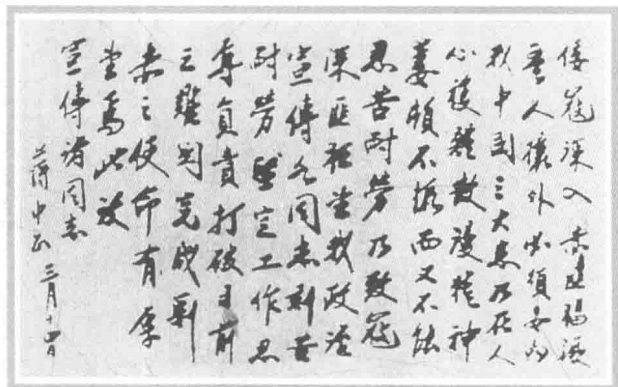 倭寇深入赤匪
吾人攘外必須安內
我中國之大患乃在人
心複雜散漫精神
萎頓不振而又不能
忍苦耐勞乃致寇
深匪望我政治
宣傳各同志刻苦
耐勞堅定工作忍
辱負責打破目前
之難關完成剿
赤之使命有厚
望焉此致
宣傳諸同志
蔣中正 三月十四日